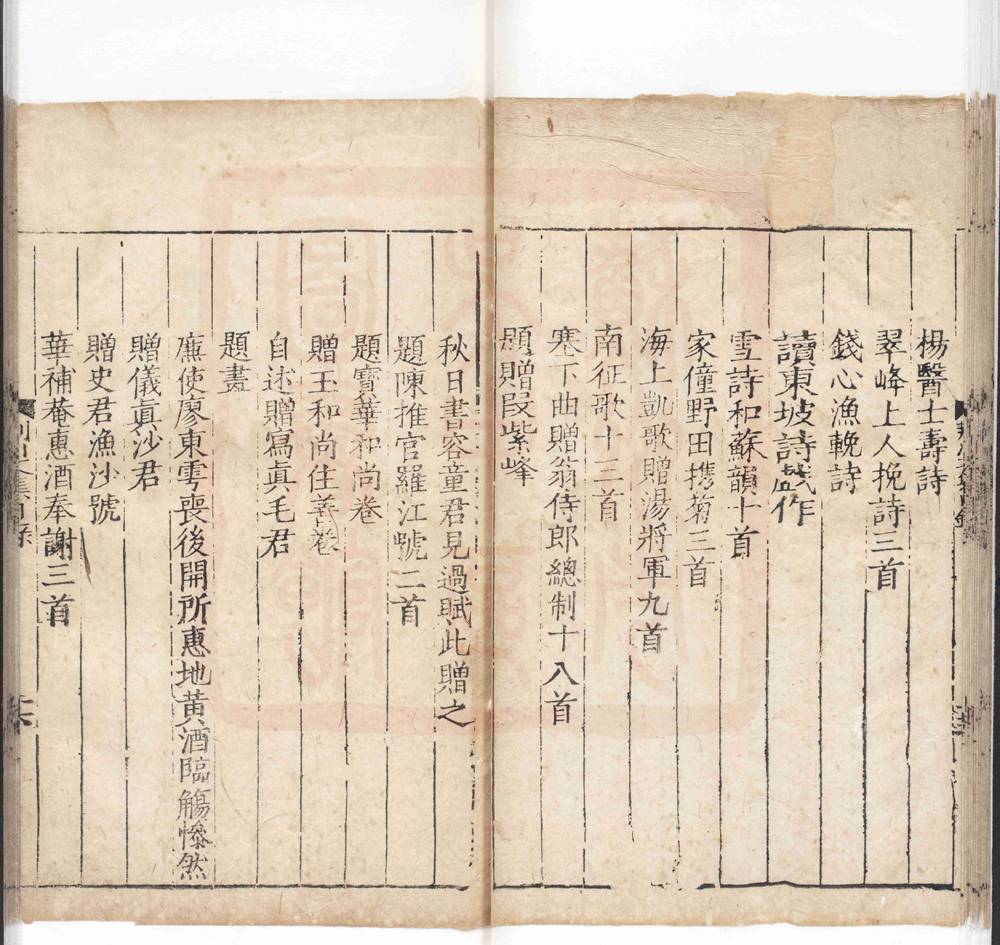 楊醫士壽詩
翠峰上人挽詩三首
錢心漁輓詩
讀東坡詩戲作
雪詩和蘇韻十首
家僮野田携菊三首
海上凱歌贈湯將軍九首
南征歌十三首
塞下曲贈翁侍郎總制十八首
題贈段紫峰
秋日書容童君見過賦此贈之
題陳推官羅江號二首
題寶華和尚卷
贈玉和尚住善卷
自述贈寫真毛君
題畫
廉使廖東雩喪後開所惠地黄酒臨觴慘然
贈儀真沙君
贈史君漁沙號
華補菴惠酒奉謝三首
荆川集目録